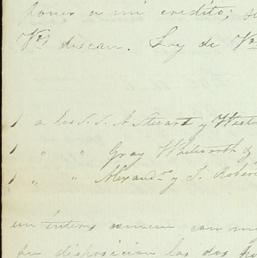 poner a mi credito, s
Vs desean. Soy de Vs
1 a los S.S. A Stewart y West
1 " " Gray Whitworth &
1 " " Alexandr y J. Rober
su disposicion las dos